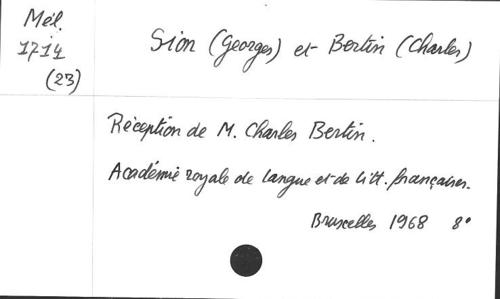 Mél.
1714
(23)
Sion (Georges) et Bertin (Charles)
Réception de M. Charles Bertin.
Académie royale de langue et de litt. françaises.
Bruxelles 1968 8°